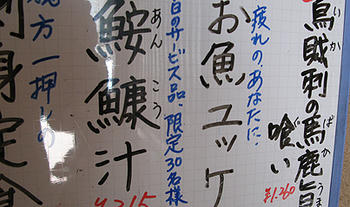 烏賊刺の馬鹿旨
いか
ばか
うま
喰い
¥1,260
疲れの、あなたに、
お魚ユッケ
日のサービス品・限定30名様
鮟鱇汁
あんこう
¥315
方一押しの
刺身定食